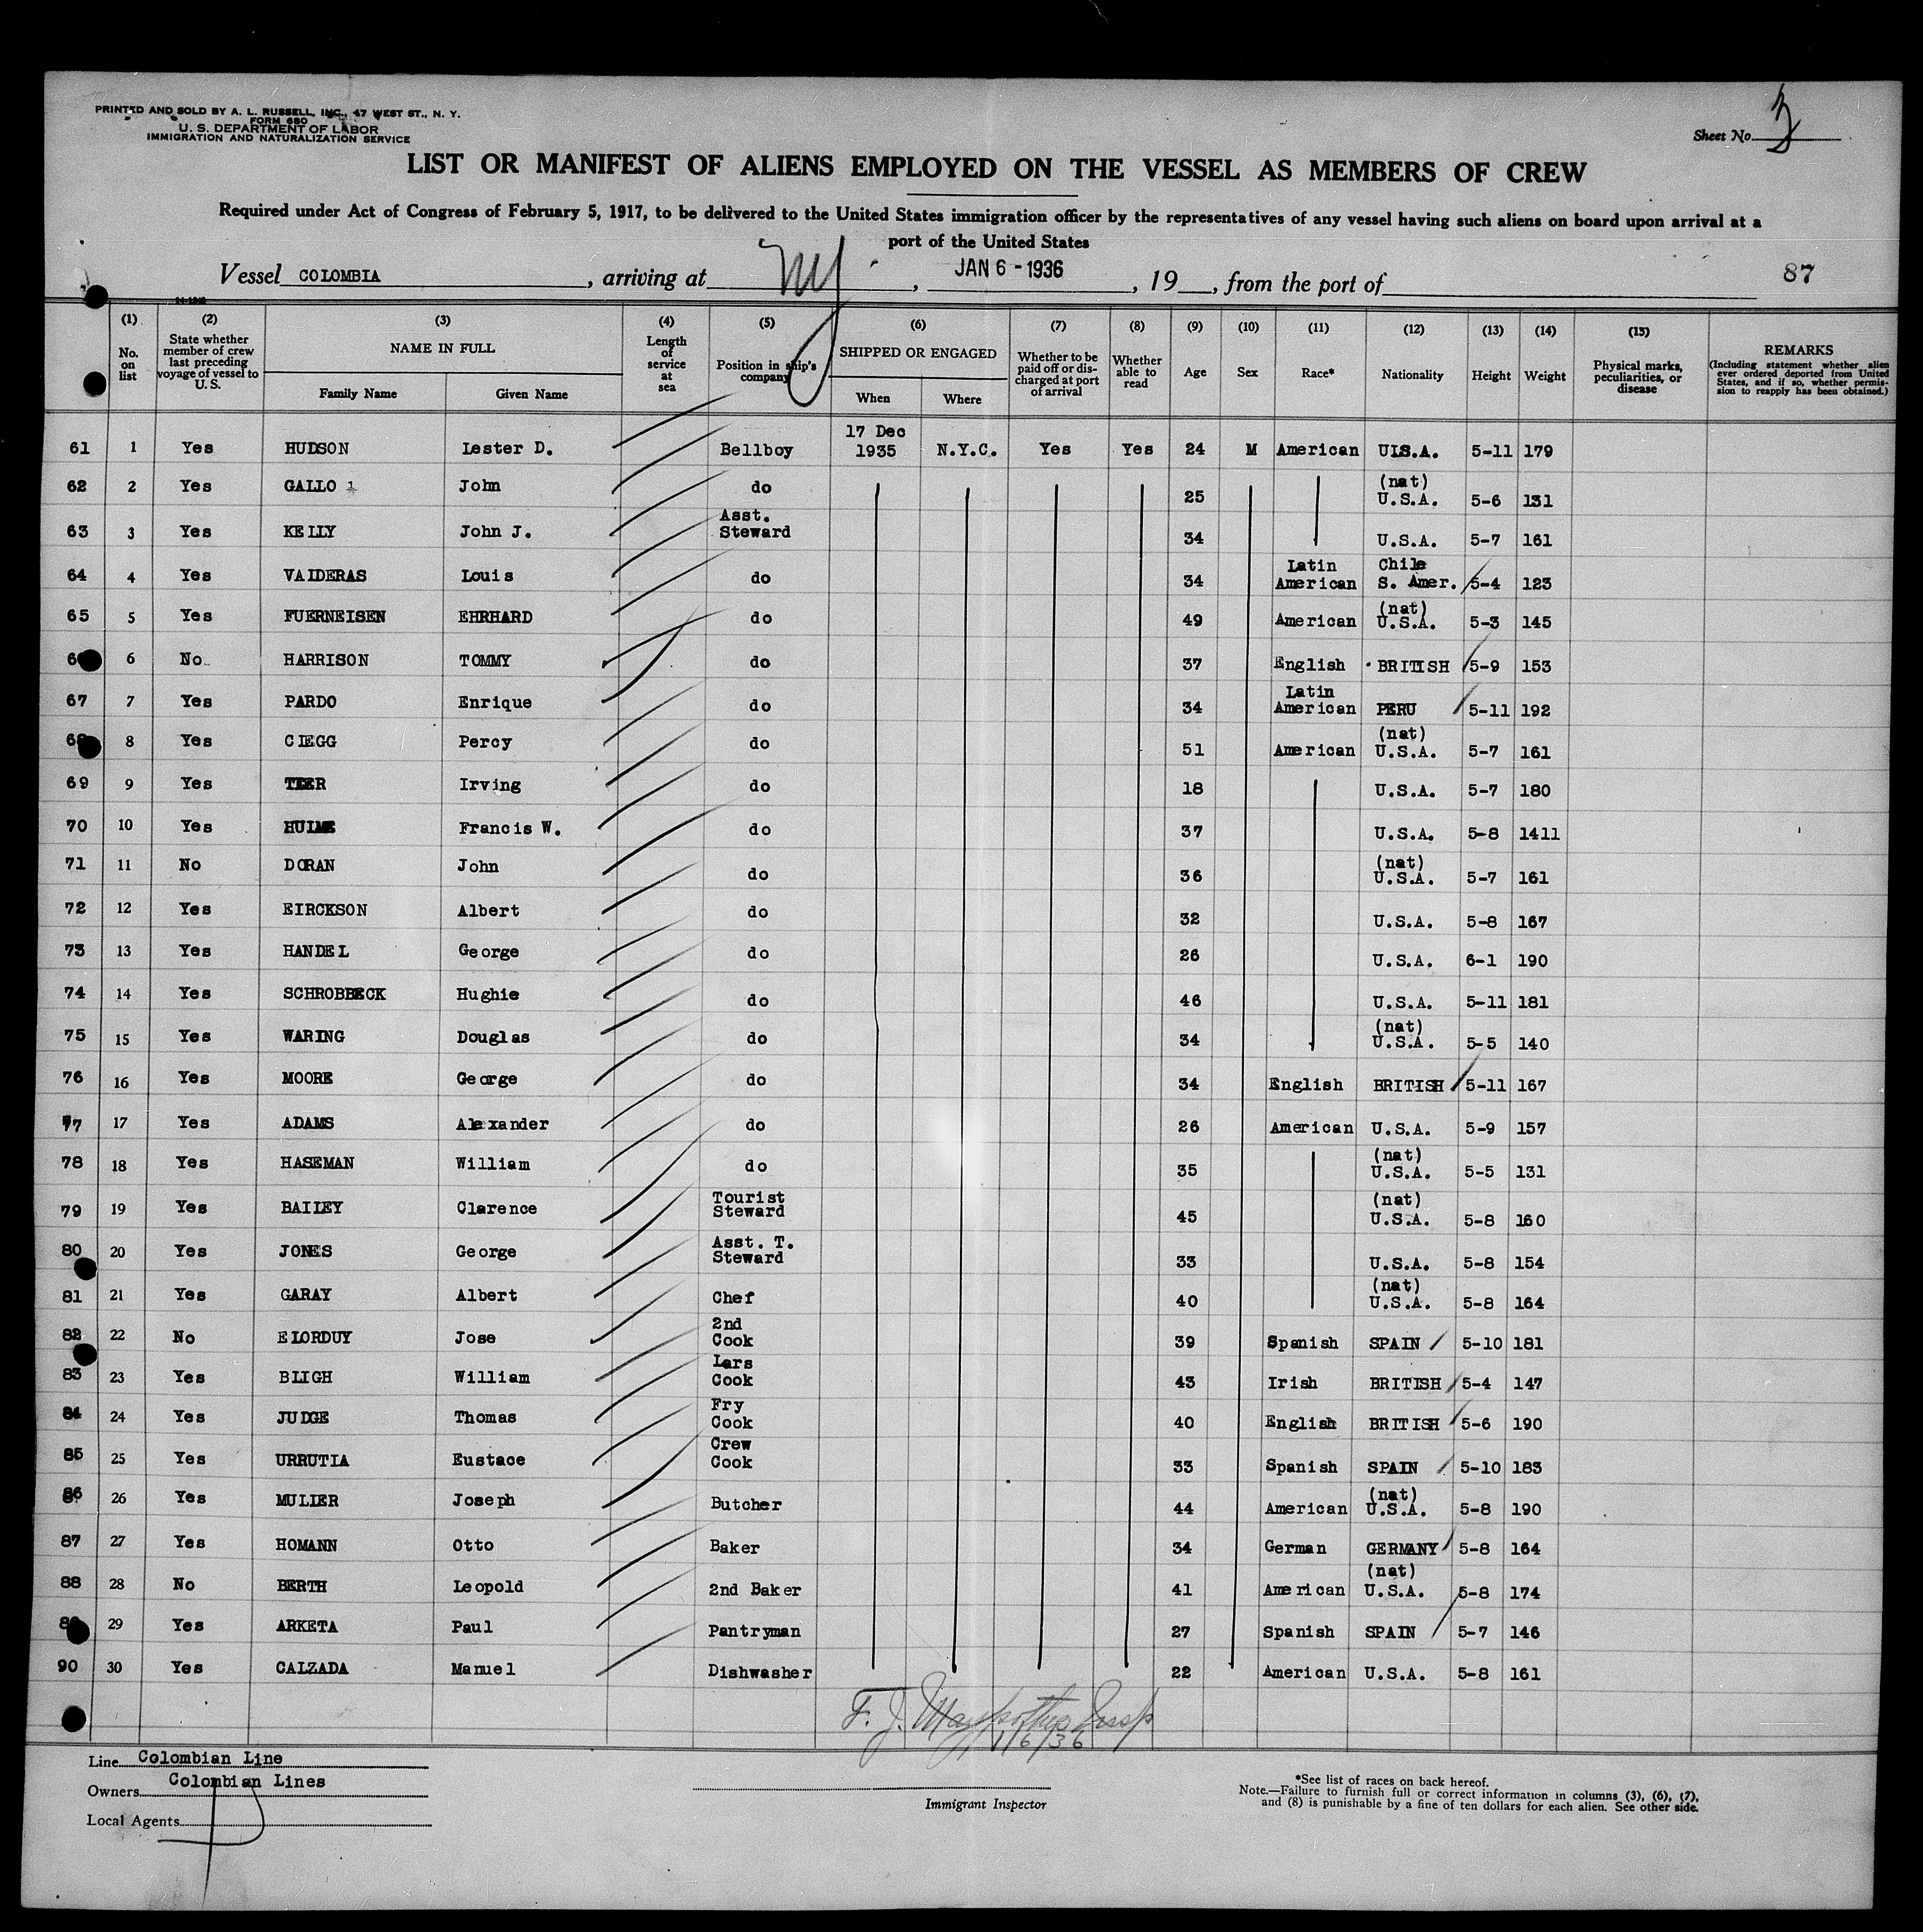 PRINTED AND SOLD BY A. L. RUSSELL, INC., 47 WEST ST., N. Y.
FORM 680
U. S. DEPARTMENT OF LABOR
IMMIGRATION AND NATURALIZATION SERVICE
Sheet No. 3
LIST OR MANIFEST OF ALIENS EMPLOYED ON THE VESSEL AS MEMBERS OF CREW
Required under Act of Congress of February 5, 1917, to be delivered to the United States immigration officer by the representatives of any vessel having such aliens on board upon arrival at a
port of the United States
Vessel COLOMBIA, arriving at NY, JAN 6 - 1936, 19__, from the port of 87
14-1240
(1) No. on list
(2) State whether member of crew last preceding voyage of vessel to U. S.
(3) NAME IN FULL Family Name Given Name
(4) Length of service at sea
(5) Position in ship's company
(6) SHIPPED OR ENGAGED When Where
(7) Whether to be paid off or discharged at port of arrival
(8) Whether able to read
(9) Age
(10) Sex
(11) Race*
(12) Nationality
(13) Height
(14) Weight
(15) Physical marks, peculiarities, or disease
REMARKS (Including statement whether alien ever ordered deported from United States, and if so, whether permission to reapply has been obtained.)
61 1 Yes HUDSON Lester D. Bellboy 17 Dec 1935 N.Y.C. Yes Yes 24 M American UIS.A. 5-11 179
62 2 Yes GALLO John do 25 (nat) U.S.A. 5-6 131
63 3 Yes KELLY John J. Asst. Steward 34 U.S.A. 5-7 161
64 4 Yes VAIDERAS Louis do 34 Latin American Chile S. Amer. 5-4 123
65 5 Yes FUERNEISEN EHRHARD do 49 American (nat) U.S.A. 5-3 145
66 6 No HARRISON TOMMY do 37 English BRITISH 5-9 153
67 7 Yes PARDO Enrique do 34 Latin American PERU 5-11 192
68 8 Yes CIEGG Percy do 51 American (nat) U.S.A. 5-7 161
69 9 Yes Irving do 18 U.S.A. 5-7 180
70 10 Yes HULME Francis W. do 37 U.S.A. 5-8 1411
71 11 No DORAN John do 36 (nat) U.S.A. 5-7 161
72 12 Yes EIRCKSON Albert do 32 U.S.A. 5-8 167
73 13 Yes HANDEL George do 26 U.S.A. 6-1 190
74 14 Yes SCHROBBECK Hughie do 46 U.S.A. 5-11 181
75 15 Yes WARING Douglas do 34 (nat) U.S.A. 5-5 140
76 16 Yes MOORE George do 34 English BRITISH 5-11 167
77 17 Yes ADAMS Alexander do 26 American U.S.A. 5-9 157
78 18 Yes HASEMAN William do 35 (nat) U.S.A. 5-5 131
79 19 Yes BAILEY Clarence Tourist Steward 45 (nat) U.S.A. 5-8 160
80 20 Yes JONES George Asst. T. Steward 33 U.S.A. 5-8 154
81 21 Yes GARAY Albert Chef 40 (nat) U.S.A. 5-8 164
82 22 No ELORDUY Jose 2nd Cook 39 Spanish SPAIN 5-10 181
83 23 Yes BLIGH William Lars Cook 43 Irish BRITISH 5-4 147
84 24 Yes JUDGE Thomas Fry Cook 40 English BRITISH 5-6 190
85 25 Yes URRUTIA Eustace Crew Cook 33 Spanish SPAIN 5-10 183
86 26 Yes MULIER Joseph Butcher 44 American (nat) U.S.A. 5-8 190
87 27 Yes HOMANN Otto Baker 34 German GERMANY 5-8 164
88 28 No BERTH Leopold 2nd Baker 41 American (nat) U.S.A. 5-8 174
89 29 Yes ARKETA Paul Pantryman 27 Spanish SPAIN 5-7 146
90 30 Yes CALZADA Manuel Dishwasher 22 American U.S.A. 5-8 161
F. J. Insp
1/6/36
Line Colombian Line
Owners Colombian Lines
Local Agents
Immigrant Inspector
*See list of races on back hereof.
Note.—Failure to furnish full or correct information in columns (3), (6), (7),
and (8) is punishable by a fine of ten dollars for each alien. See other side.